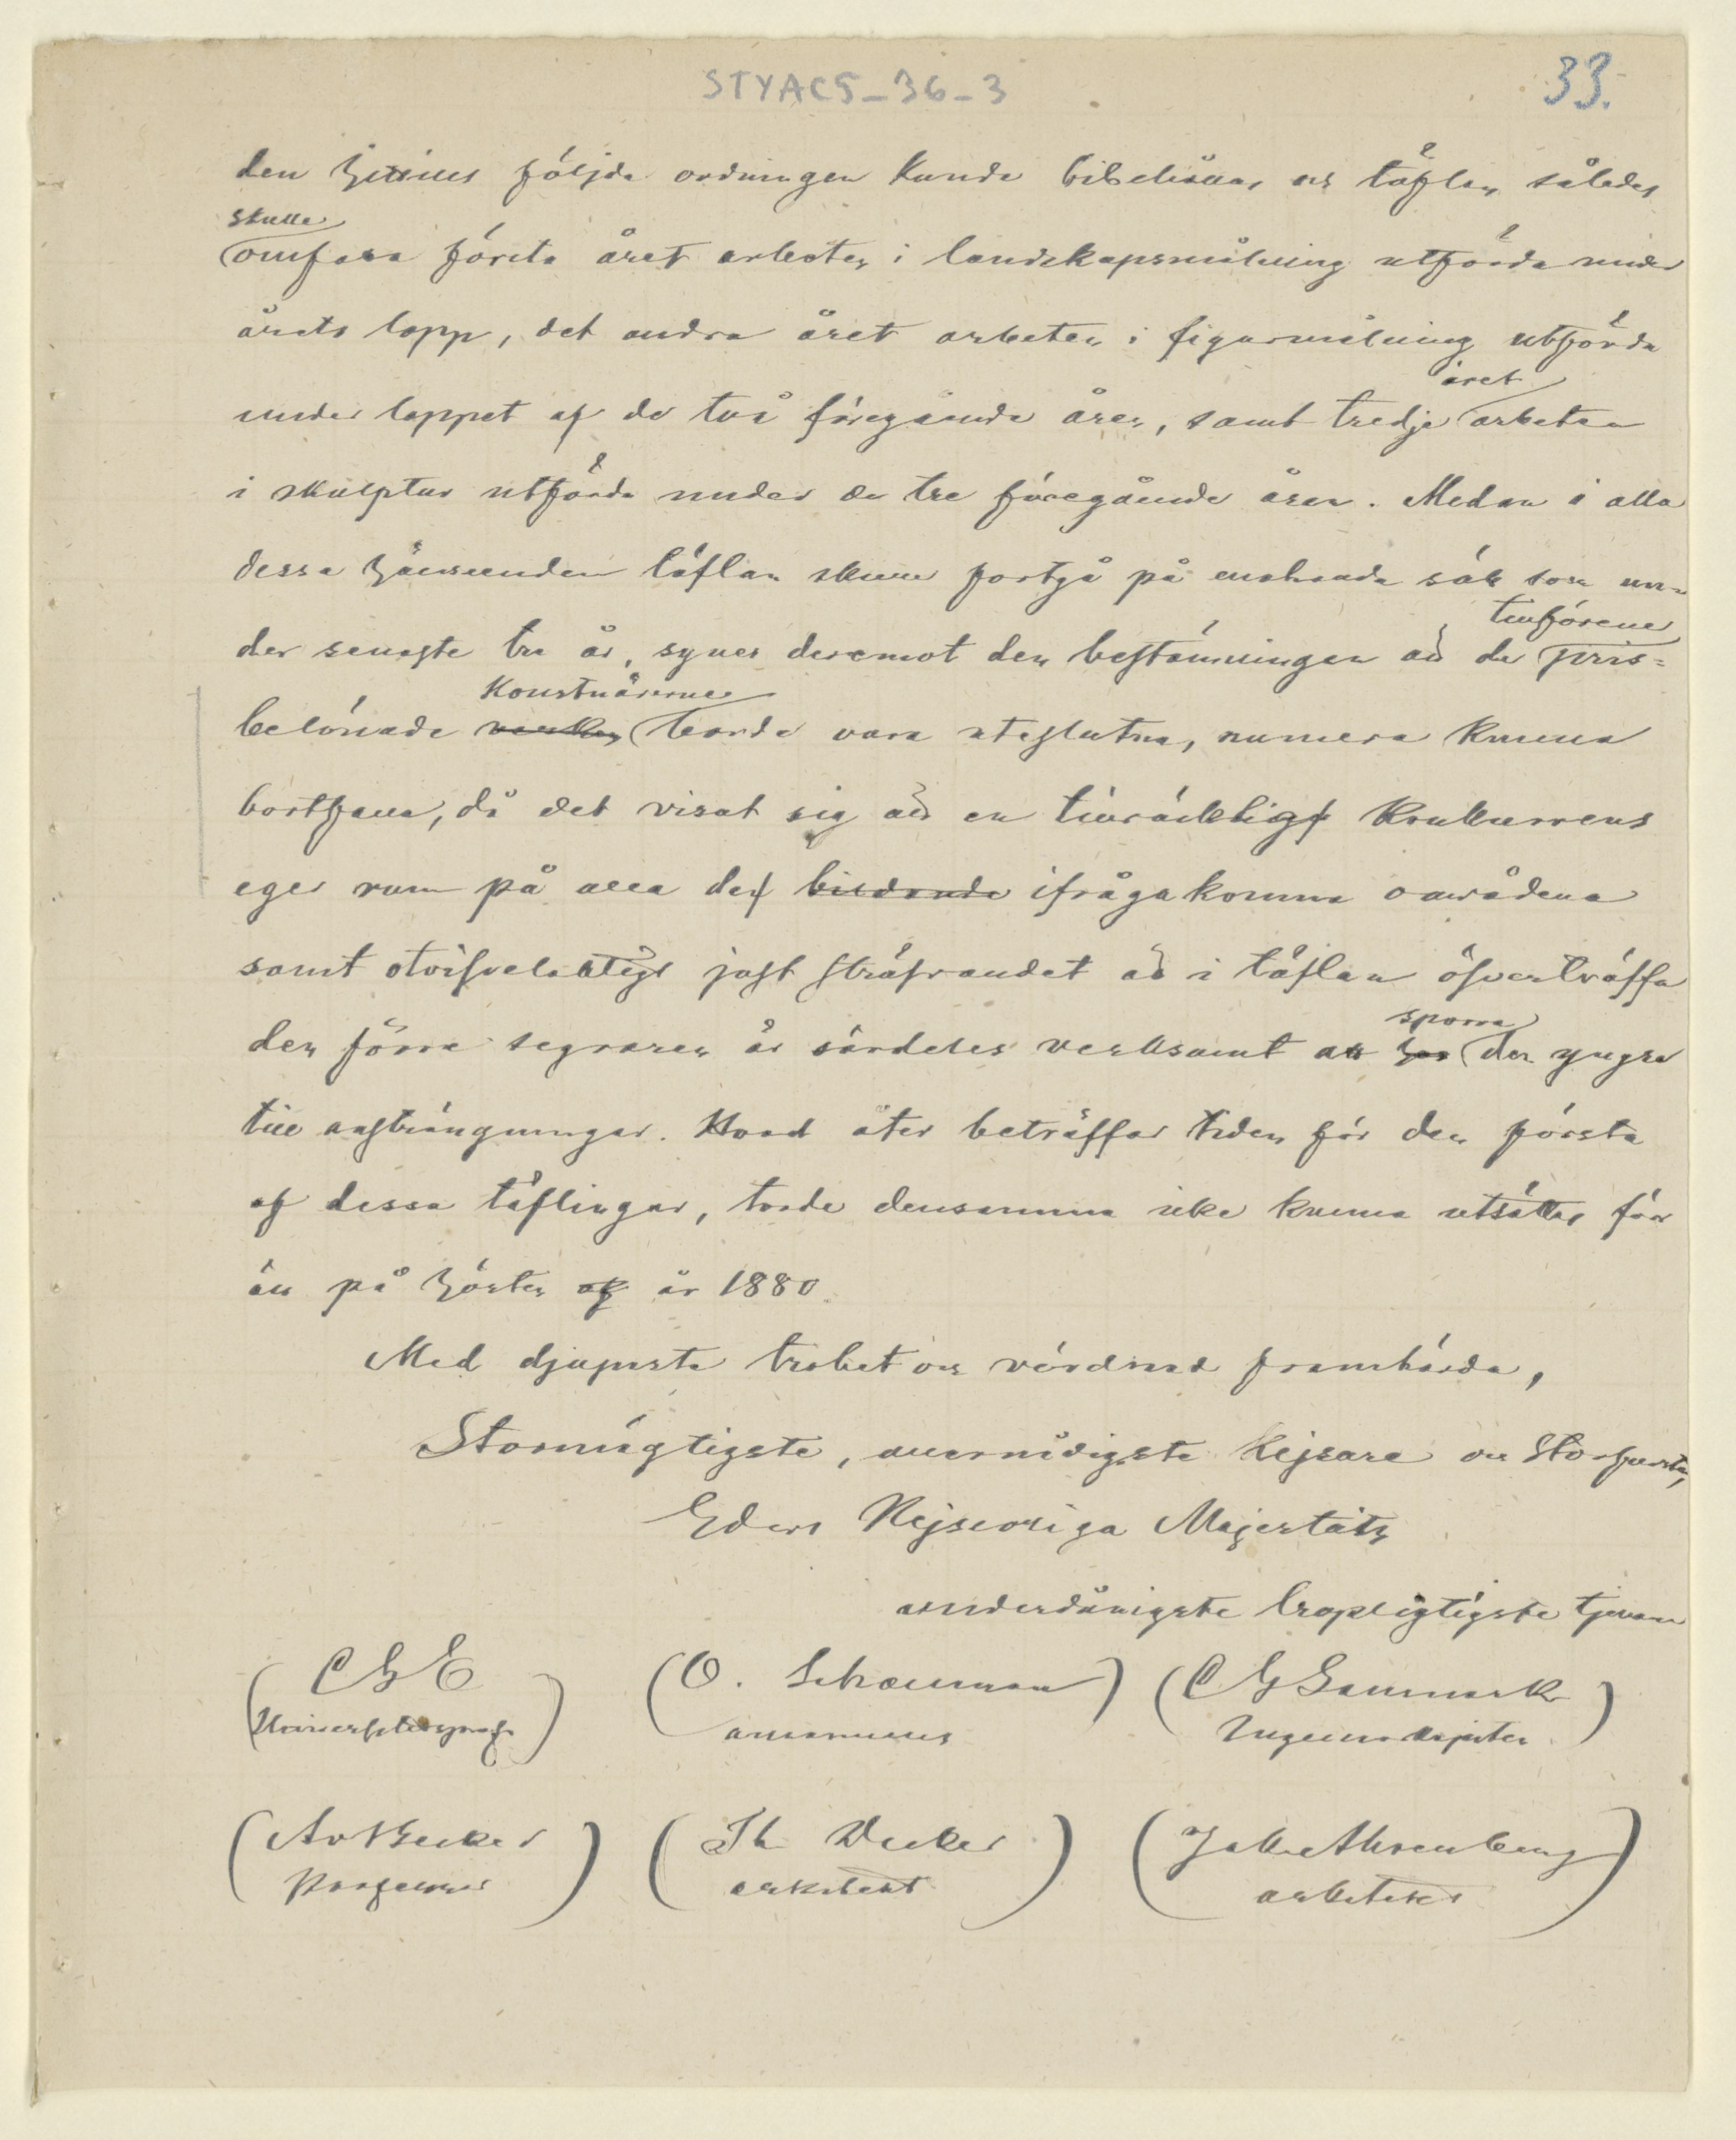 STYACS_36_3
33.
den hittills följda ordningen kunde bibehållas och täflan således
skulle
omfatta första året arbeten i landskapsmålning utförda under
årets lopp, det andra året arbeten i figurmålning utförda
året
under loppet af de två föregående åren, samt tredje arbeten
i skulptur utförda under de tre föregående åren. Medan i alla
dessa hänseenden täflan skulle fortgå på enahanda sätt som un-
tillförene
der senaste tre år, synes deremot den bestämningen att de pris-
Konstnärerne
belönade verken borde vara uteslutna, numera kunna
bortfalla, då det visat sig att en tillräcklig konkurrens
eger rum på alla de bildande ifrågakomna områdena
samt otvifvelaktigt just sträfvandet att i täflan öfverträffa
sporra
den förra segraren är särdeles verksamt att hos den yngre
till ansträngningar. Hvad åter beträffar tiden för den första
af dessa täflingar, torde densamma icke kunna utsättas förr
än på hösten af år 1880.
Med djupaste trohet och vördnad framhärda,
Stormägtigste, allernådigste Kejsare och Storfurste,
Eders Kejserliga Majestäts
underdånigste tropligtigste tjenare
(C G E) (O. Schauman) (C G Sanmark)
Universitetsprof. amanuens
(A v Becker) (Th Decker) (Jac Ahrenberg)
Professor arkitekt arkitekt